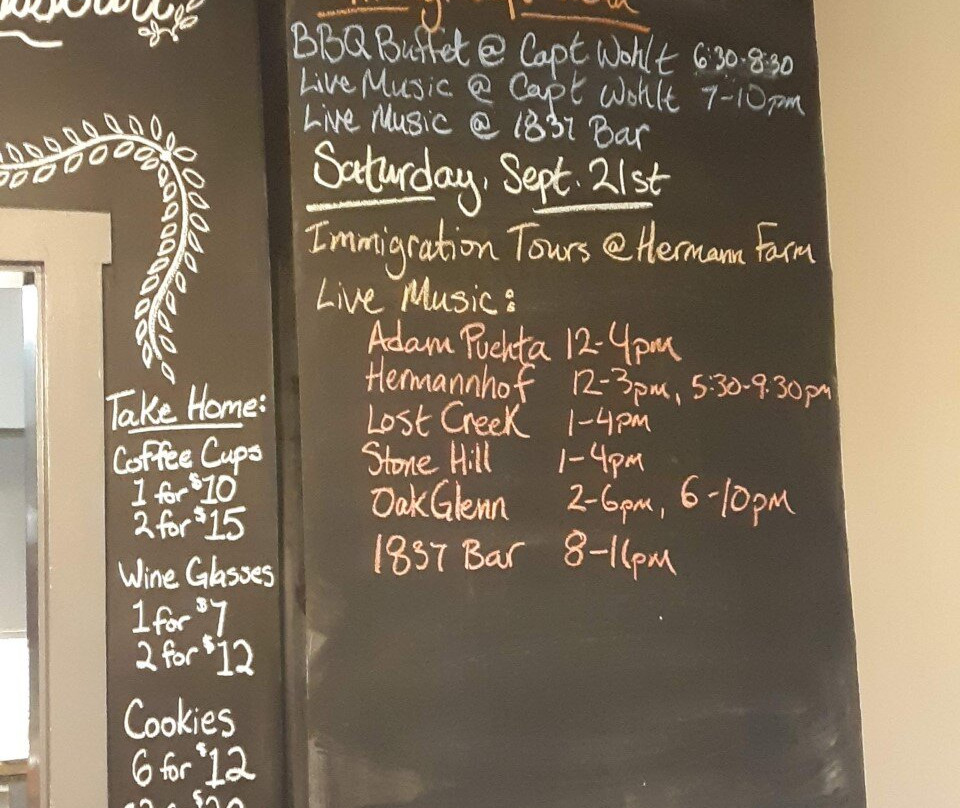 Take Home:
Coffee Cups
1 for $10
2 for $15
Wine Glasses
1 for $7
2 for $12
Cookies
6 for $12
BBQ Buffet @ Capt Wohlt 6:30-8:30
Live Music @ Capt Wohlt 7-10pm
Live Music @ 1837 Bar
Saturday, Sept. 21st
Immigration Tours @ Hermann Farm
Live Music:
Adam Puchta 12-4pm
Hermannhof 12-3pm, 5:30-9:30pm
Lost Creek 1-4pm
Stone Hill 1-4pm
OakGlenn 2-6pm, 6-10pm
1837 Bar 8-11pm